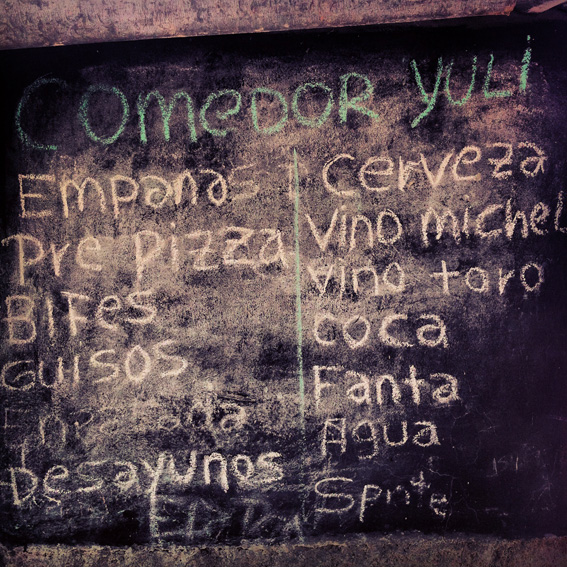 COMEDOR YULI
Empanas
Pre Pizza
BIFes
GUISOS
Desayunos
Cerveza
Vino michel
vino toro
COCA
Fanta
Agua
Sprite